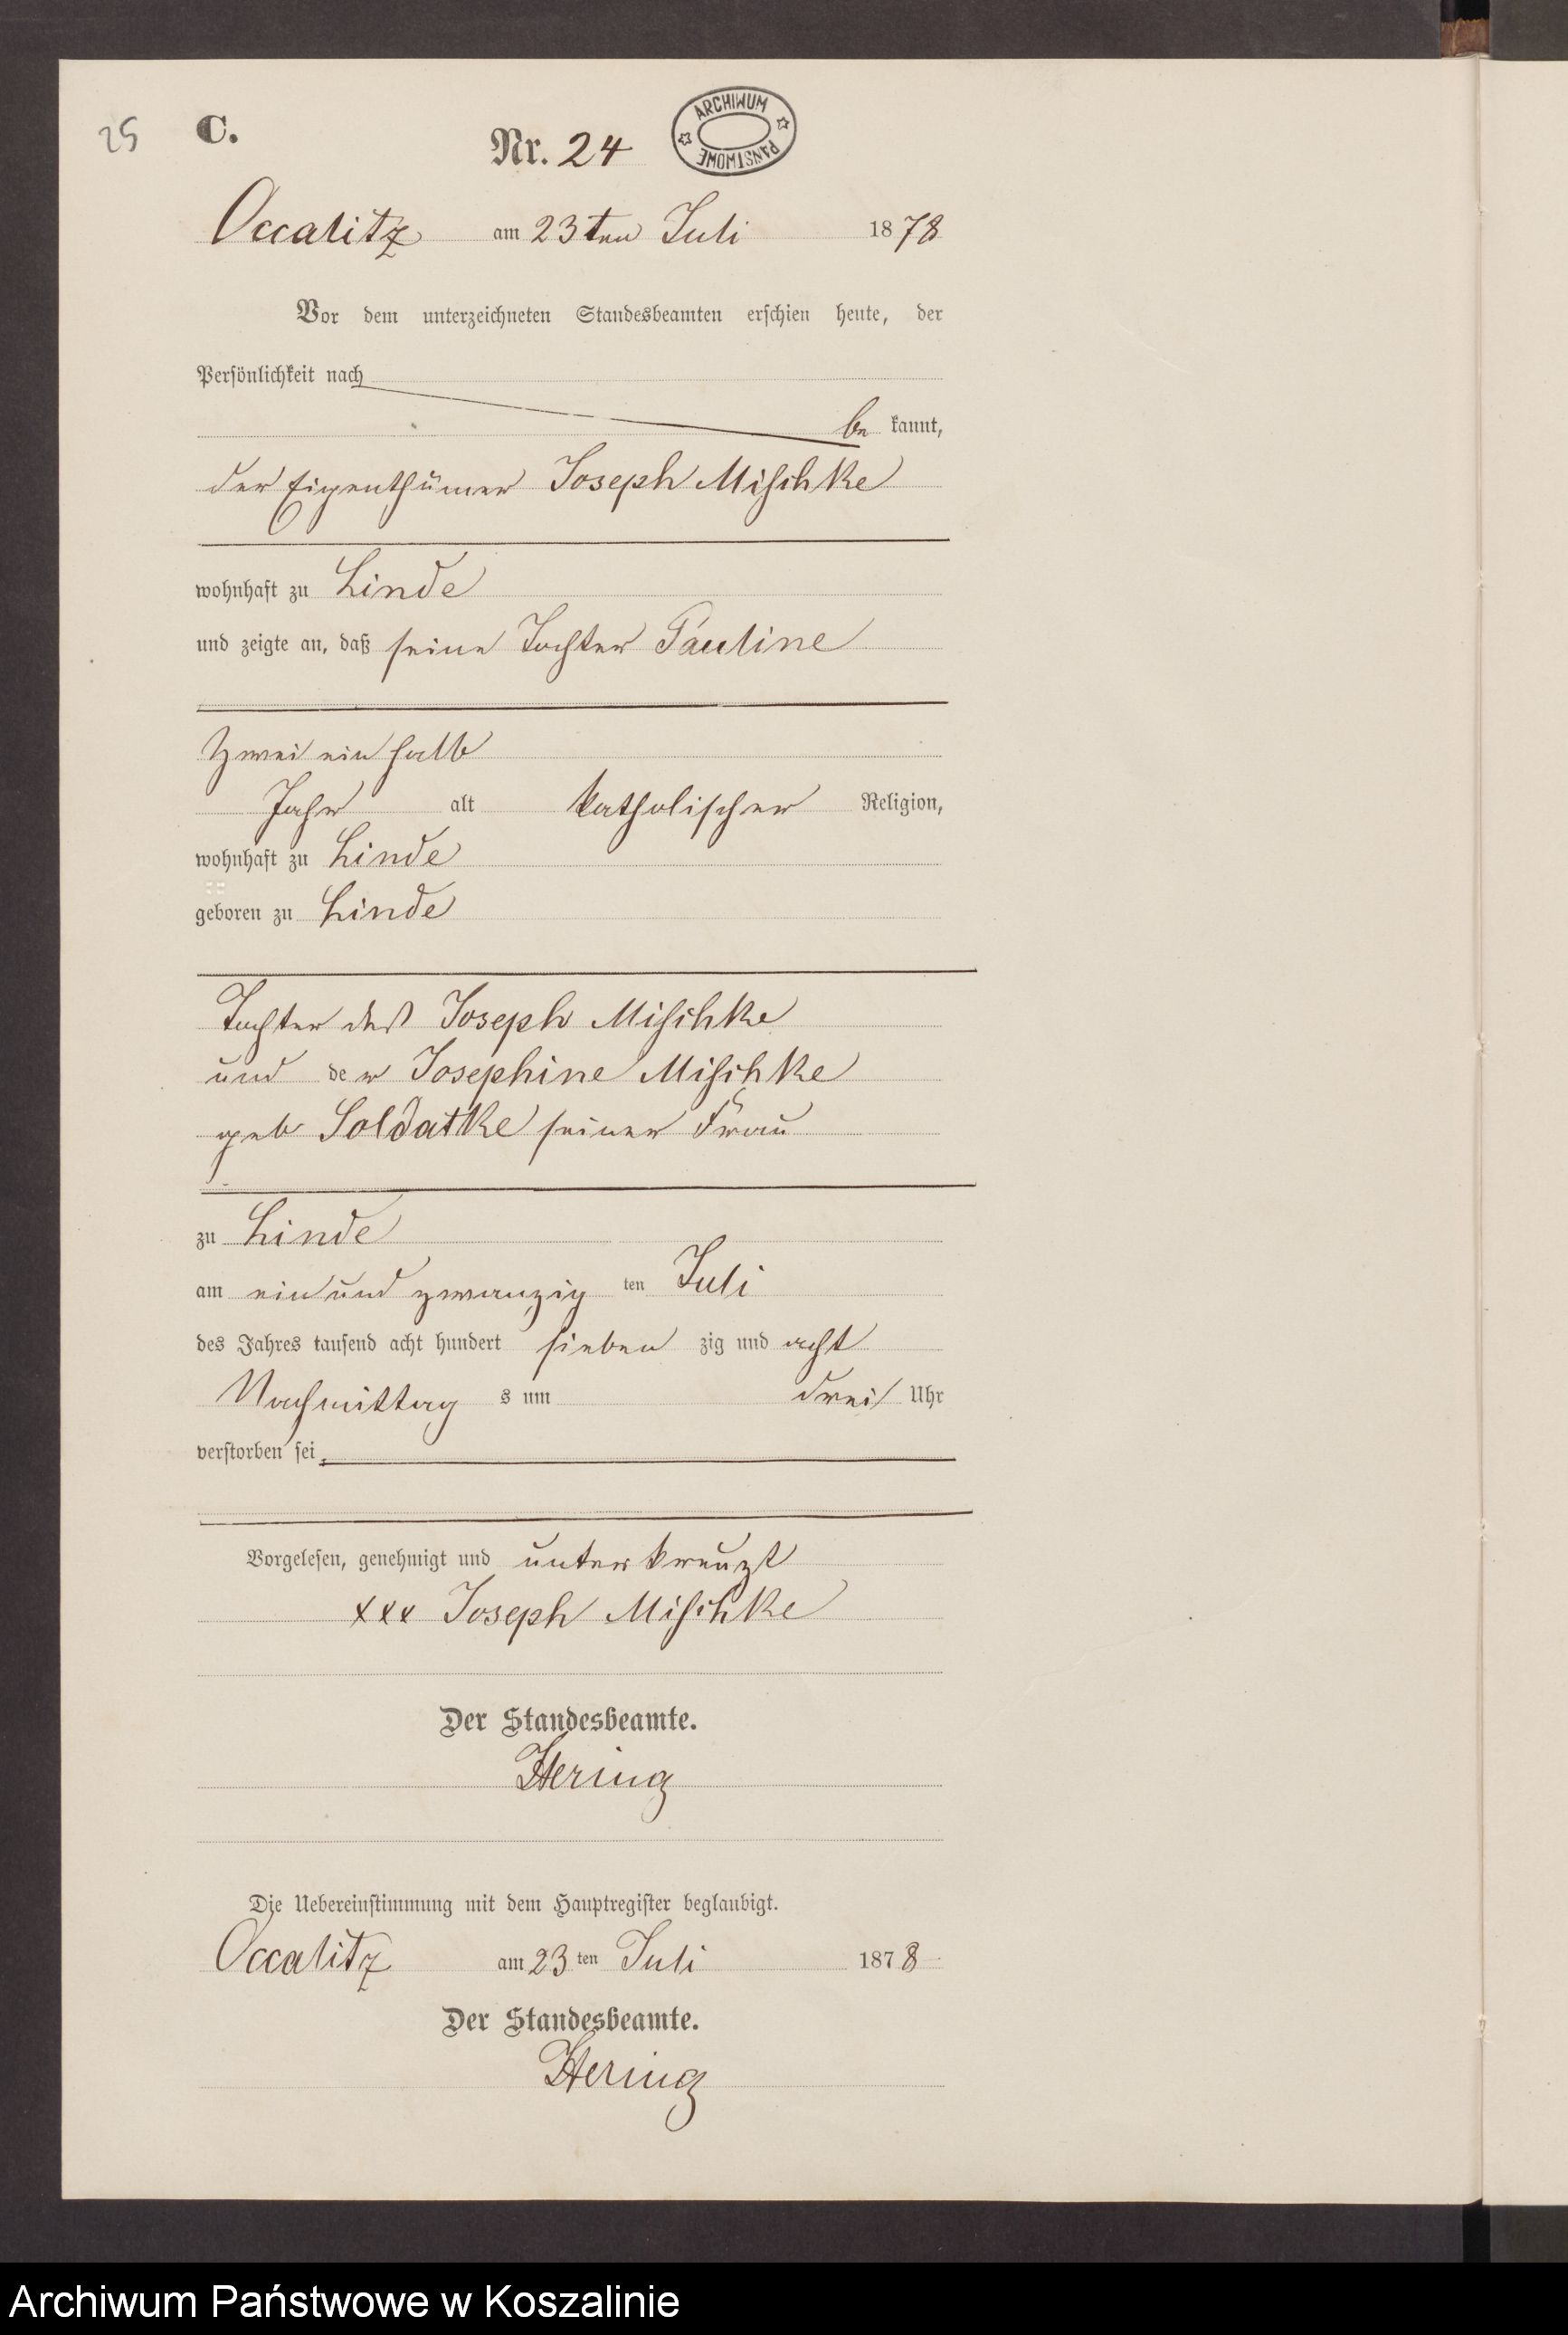 25 C. Nr. 24
ARCHIWUM PAŃSTWOWE
Occalitz am 23ten Juli 1878
Vor dem unterzeichneten Standesbeamten erschien heute, der
Persönlichkeit nach
be kannt,
der Eigenthümer Joseph Mischke
wohnhaft zu Linde
und zeigte an, daß seine Tochter Pauline
Zwei ein halb
Jahr alt katholischer Religion,
wohnhaft zu Linde
geboren zu Linde
Tochter des Joseph Mischke
und der Josephine Mischke
geb Soldatke seiner Frau
zu Linde
am ein und zwanzig ten Juli
des Jahres tausend acht hundert sieben zig und acht
Nachmittag s um drei Uhr
verstorben sei.
Vorgelesen, genehmigt und unterkreuzt
xxx Joseph Mischke
Der Standesbeamte.
Hering
Die Uebereinstimmung mit dem Hauptregister beglaubigt.
Occalitz am 23 ten Juli 1878
Der Standesbeamte.
Hering
Archiwum Państwowe w Koszalinie